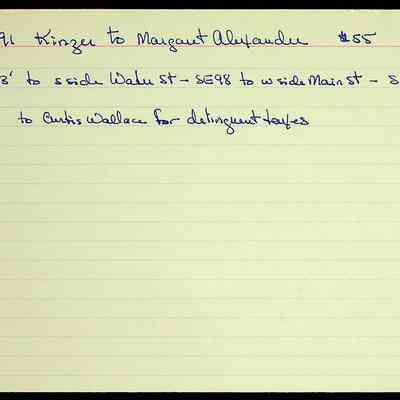 91 Kinzer to Margaret Alexander $55
3' to s side Water St - SE98 to w side Main St - S
to Curtis Wallace for delinquent taxes